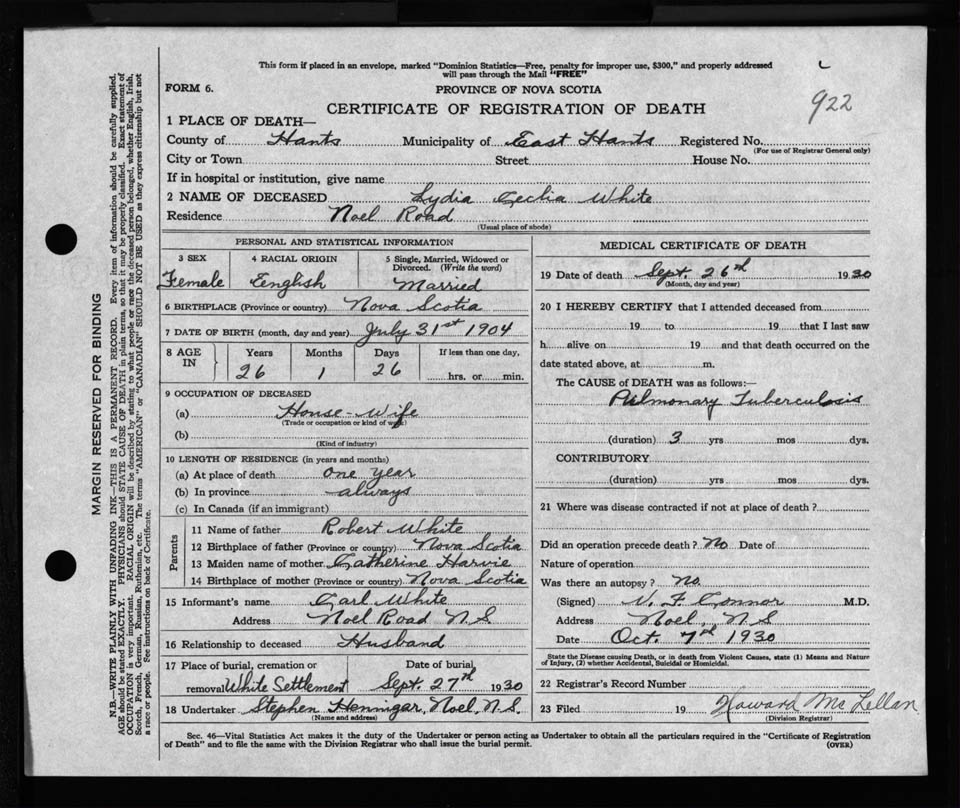 This form if placed in an envelope, marked "Dominion Statistics—Free, penalty for improper use, $300," and properly addressed
will pass through the Mail "FREE"
FORM 6.
PROVINCE OF NOVA SCOTIA
922
CERTIFICATE OF REGISTRATION OF DEATH
1 PLACE OF DEATH—
County of Hants Municipality of East Hants Registered No.
(For use of Registrar General only)
City or Town Street House No.
If in hospital or institution, give name
2 NAME OF DECEASED Lydia Ceclia White
Residence Noel Road
(Usual place of abode)
PERSONAL AND STATISTICAL INFORMATION
3 SEX 4 RACIAL ORIGIN 5 Single, Married, Widowed or
Divorced. (Write the word)
Female English Married
6 BIRTHPLACE (Province or country) Nova Scotia
7 DATE OF BIRTH (month, day and year) July 31st 1904
8 AGE IN Years Months Days If less than one day,
26 1 26 hrs. or min.
9 OCCUPATION OF DECEASED
(a) House-Wife
(Trade or occupation or kind of work)
(b)
(Kind of industry)
10 LENGTH OF RESIDENCE (in years and months)
(a) At place of death one year
(b) In province always
(c) In Canada (if an immigrant)
Parents
11 Name of father Robert White
12 Birthplace of father (Province or country) Nova Scotia
13 Maiden name of mother Catherine Harvie
14 Birthplace of mother (Province or country) Nova Scotia
15 Informant's name Carl White
Address Noel Road N.S
16 Relationship to deceased Husband
17 Place of burial, cremation or Date of burial
removal White Settlement Sept. 27th 1930
18 Undertaker Stephen Hennigar, Noel, N.S.
(Name and address)
MEDICAL CERTIFICATE OF DEATH
19 Date of death Sept. 26th 1930
(Month, day and year)
20 I HEREBY CERTIFY that I attended deceased from
19 to 19 that I last saw
h alive on 19 and that death occurred on the
date stated above, at m.
The CAUSE OF DEATH was as follows:—
Pulmonary Tuberculosis
(duration) 3 yrs mos dys.
CONTRIBUTORY
(duration) yrs mos dys.
21 Where was disease contracted if not at place of death?
Did an operation precede death? No Date of
Nature of operation
Was there an autopsy? No
(Signed) V. F. Connor M.D.
Address Noel, N S
Date Oct. 7th 1930
State the Disease causing Death, or in death from Violent Causes, state (1) Means and Nature
of Injury, (2) whether Accidental, Suicidal or Homicidal.
22 Registrar's Record Number
23 Filed 19 Howard McLellan
(Division Registrar)
Sec. 46—Vital Statistics Act makes it the duty of the Undertaker or person acting as Undertaker to obtain all the particulars required in the "Certificate of Registration
of Death" and to file the same with the Division Registrar who shall issue the burial permit.
(OVER)
MARGIN RESERVED FOR BINDING
N.B.—WRITE PLAINLY WITH UNFADING INK—THIS IS A PERMANENT RECORD. Every item of information should be carefully supplied.
AGE should be stated EXACTLY. PHYSICIANS should STATE CAUSE OF DEATH in plain terms, so that it may be properly classified. Exact statement of
OCCUPATION is very important. RACIAL ORIGIN will be described by stating to what people or race the deceased person belonged, whether English, Irish,
Scotch, French, German, Russian, Ruthenian, etc. The terms "AMERICAN" or "CANADIAN" SHOULD NOT BE USED as they express citizenship but not
a race or people. See instructions on back of Certificate.